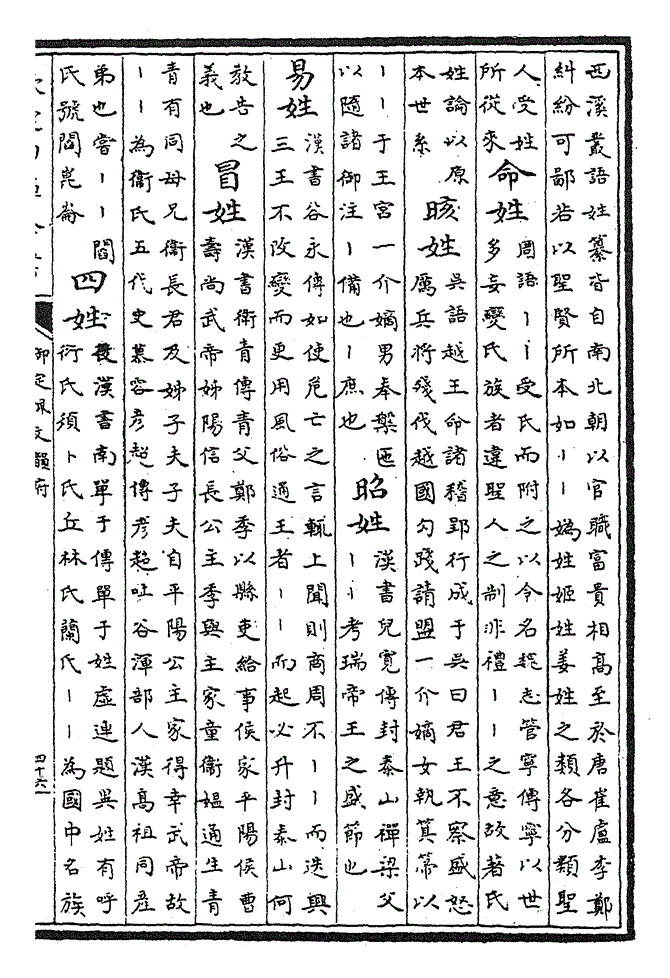 西溪叢語姓纂皆自南北朝以官職富貴相高至於唐崔盧李鄭
糾紛可鄙若以聖賢所本如丨丨媯姓姬姓姜姓之類各分類聖
人受姓
所從來
命姓
周語丨丨受氏而附之以令名魏志管寧傳寧以世
多妄變氏族者違聖人之制非禮丨丨之意故著氏
姓論以原
本世系
晐姓
吳語越王命諸稽郢行成于吳曰君王不察盛怒
厲兵將殘伐越國勾踐請盟一介嫡女執箕箒以
丨丨于王宮一介嫡男奉槃匜
以隨諸御注丨備也丨庶也
昭姓
漢書兒寬傳封泰山禪梁父
丨丨考瑞帝王之盛節也
易姓
漢書谷永傳如使危亡之言輒上聞則商周不丨丨而迭興
三王不改變而更用風俗通王者丨丨而起必升封泰山何
教告之
義也
冒姓
漢書衛青傳青父鄭季以縣吏給事侯家平陽侯曹
壽尚武帝姊陽信長公主季與主家童衛媼通生青
青有同母兄衛長君及姊子夫子夫自平陽公主家得幸武帝故
丨丨為衛氏五代史慕容彥超傳彥超吐谷渾部人漢高祖同產
弟也嘗丨丨閻
氏號閻崑崙
四姓
後漢書南單于傳單于姓虛連題異姓有呼
衍氏須卜氏丘林氏蘭氏丨丨為國中名族
御定佩文韻府
四十六